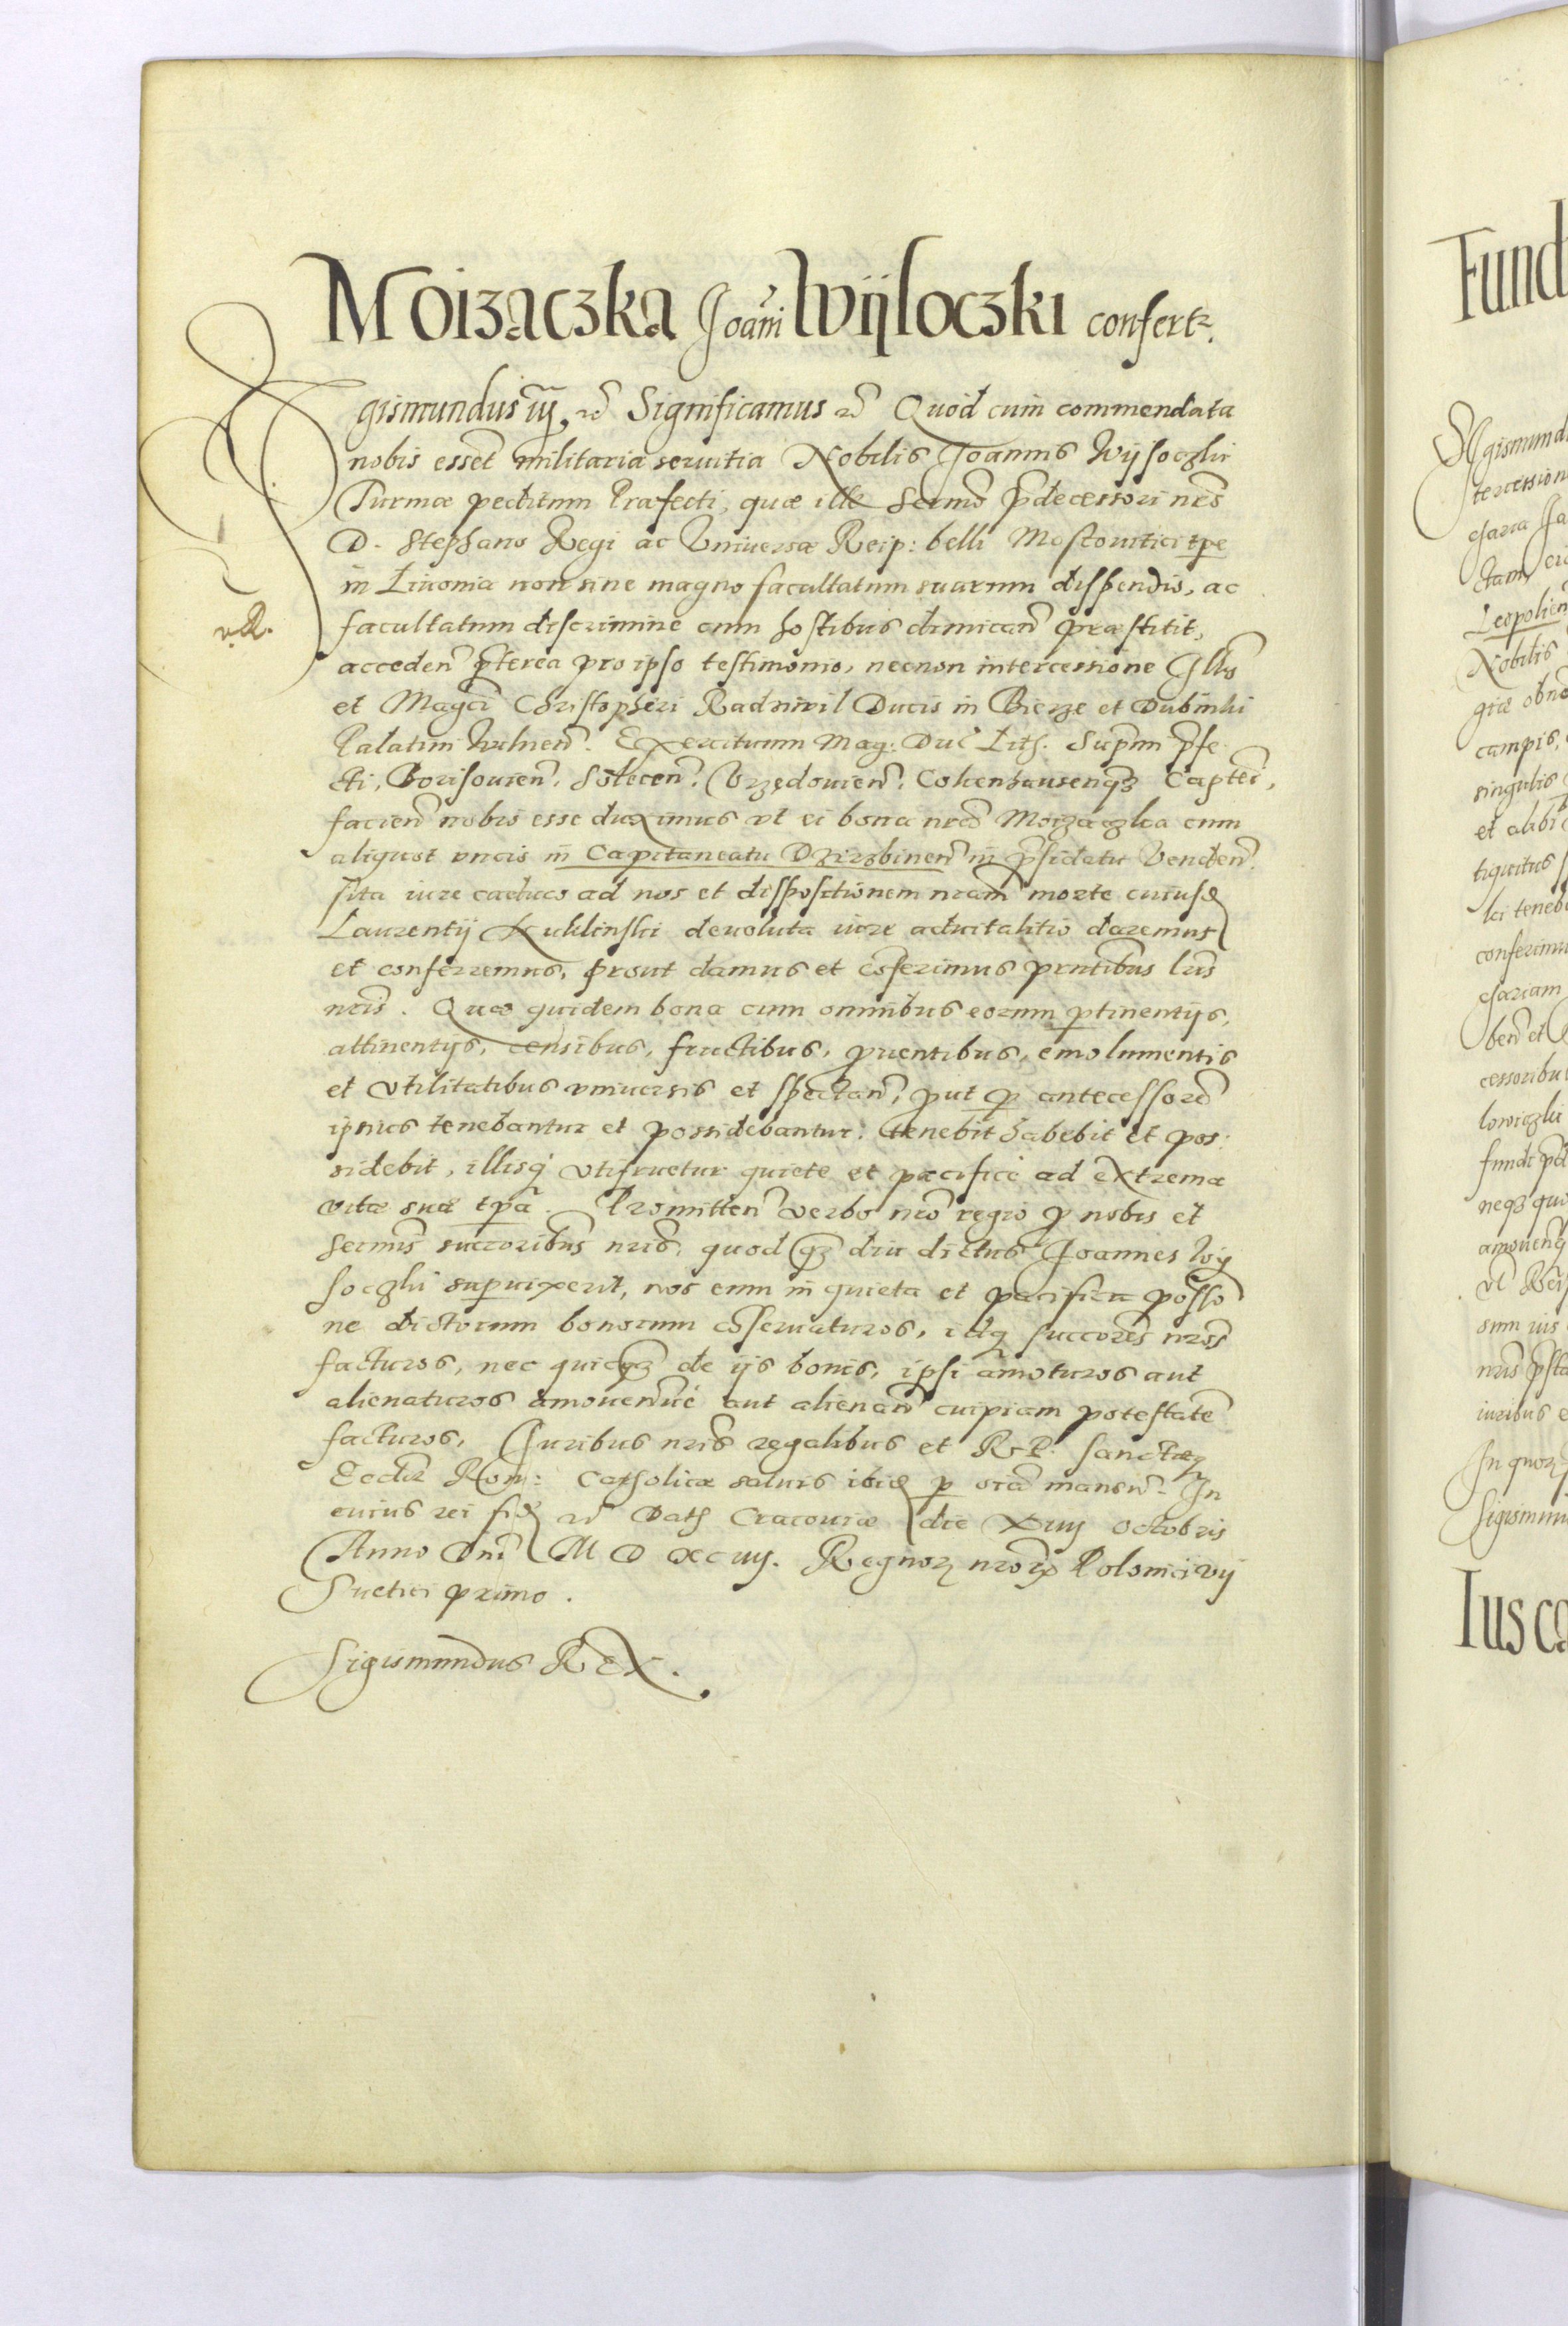 Moizaczka Joanni Wijsoczki confertr.
Sigismundus iij, etc Significamus etc Quod cum commendata
nobis essent militaria seruitia Nobilis Joannis Wijsoczki
Turmæ peditum Præfecti, quæ ille Sermo prdecessori nro
D. Stephano Regi ac Vniuersæ Reip: belli Moscouitici tpe
in Liuonia non sine magno facultatum suarum dispendio, ac
facultatum discrimine cum hostibus dimican præstitit,
acceden prterea pro ipso testimonio, necnon intercessione Illis
et Magci Christopheri Radziwil Ducis in Bierze et Dubinki
Palatini Vilnen. Exercituum Mag: Duc Lith. Suprmi prfe
cti, Borisouien. Solecen. Vrzędouien. Cokenhausenqz Captei,
facien nobis esse duximus vt ei bona nra Moizaczka cum
aliquot vncis in Capitaneatu Dzirzbinen in prsidatu Venden.
sita iure caduco ad nos et dispositionem nram morte cuiusd
Laurentij Kuklinski deuoluta iure aduitalitio daremus
et conferremus, prout damus et conferimus prntibus lris
nris. Quæ quidem bona cum omnibus eorum ptinentijs,
attinentijs, censibus, fructibus, prouentibus, emolumentis
et vtilitatibus vniuersis et spectan, prout p antecessores
ipsius tenebantur et possidebantur. tenebit habebit et pos:
sidebit, illisq vtifruetur quiete et pacifice ad extrema
vitæ suæ tpa. Promitten verbo nro regio p nobis et
Sermis succoribus nris, quod qz diu dictus Joannes Wij
soczki supuixerit, nos eum in quieta et pacifica possio
ne dictorum bonorum conseruaturos, idq succores nros
facturos, nec quicqz de ijs bonis, ipsi amoturos aut
alienaturos amouendive aut alienan cuipiam potestatem
facturos, Juribus nris regalibus et R.P. Sanctæq
Eccliæ Rom: Catholicæ saluis ibid p oia mansur. In
cuius rei fid etc Dat Cracouiæ die xviij Octobris
Anno Dni M D xciiij. Regnor nror Poloniæ vij
Sueciæ primo.
Sigismundus Rex.
v.R.
Fund
Sigismund
tercession
Leopolien
Nobilis
campis,
singulis
et alibi
conferimu
cessoribu
neqz quo
iuribus e
In quor
Sigismun
Ius co